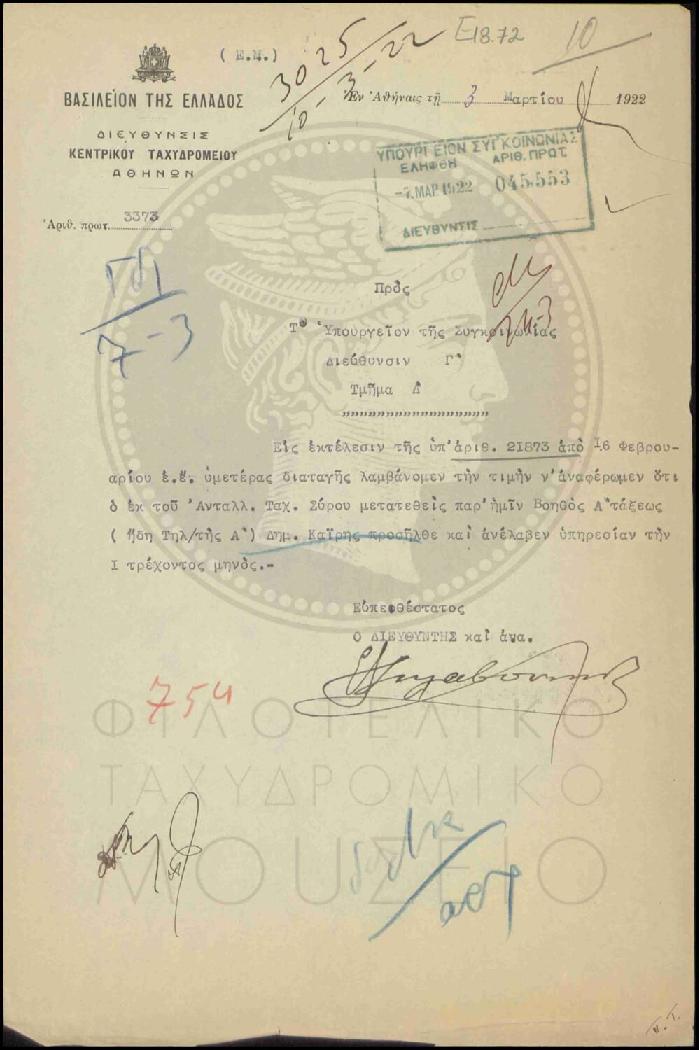 ( Ε.Μ.)
3025
10-3-22
Ε18.72
10
ΒΑΣΙΛΕΙΟΝ ΤΗΣ ΕΛΛΑΔΟΣ
Ἐν Ἀθήναις τῇ 3 Μαρτίου 1922
ΔΙΕΥΘΥΝΣΙΣ
ΚΕΝΤΡΙΚΟΥ ΤΑΧΥΔΡΟΜΕΙΟΥ
ΑΘΗΝΩΝ
Ἀριθ. πρωτ. 3373
ΥΠΟΥΡΓΕΙΟΝ ΣΥΓΚΟΙΝΩΝΙΑΣ
ΕΛΗΦΘΗ ΑΡΙΘ. ΠΡΩΤ
-7. ΜΑΡ 1922 045.553
ΔΙΕΥΘΥΝΣΙΣ
7-3
Πρὸς
Τὸ Ὑπουργεῖον τῆς Συγκοινωνίας
Διεύθυνσιν Γ'
Τμῆμα Δ'
"""""""""""""""""""
Εἰς ἐκτέλεσιν τῆς ὑπ'ἀριθ. 21873 ἀπὸ 16 Φεβρου-
αρίου ἐ.ἔ. ὑμετέρας διαταγῆς λαμβάνομεν τὴν τιμὴν ν'ἀναφέρωμεν ὅτι
ὁ ἐκ τοῦ Ἀνταλλ. Ταχ. Σύρου μετατεθεὶς παρ'ἡμῖν Βοηθὸς Α'τάξεως
( ἤδη Τηλ/τὴς Α') Δημ. Καΐρης προσῆλθε καὶ ἀνέλαβεν ὑπηρεσίαν τὴν
Ι τρέχοντος μηνός.-
Εὐπειθέστατος
Ο ΔΙΕΥΘΥΝΤΗΣ καὶ ἀνα.
754
ΦΙΛΟΤΕΛΙΚΟ
ΤΑΧΥΔΡΟΜΙΚΟ
ΜΟΥΣΕΙΟ